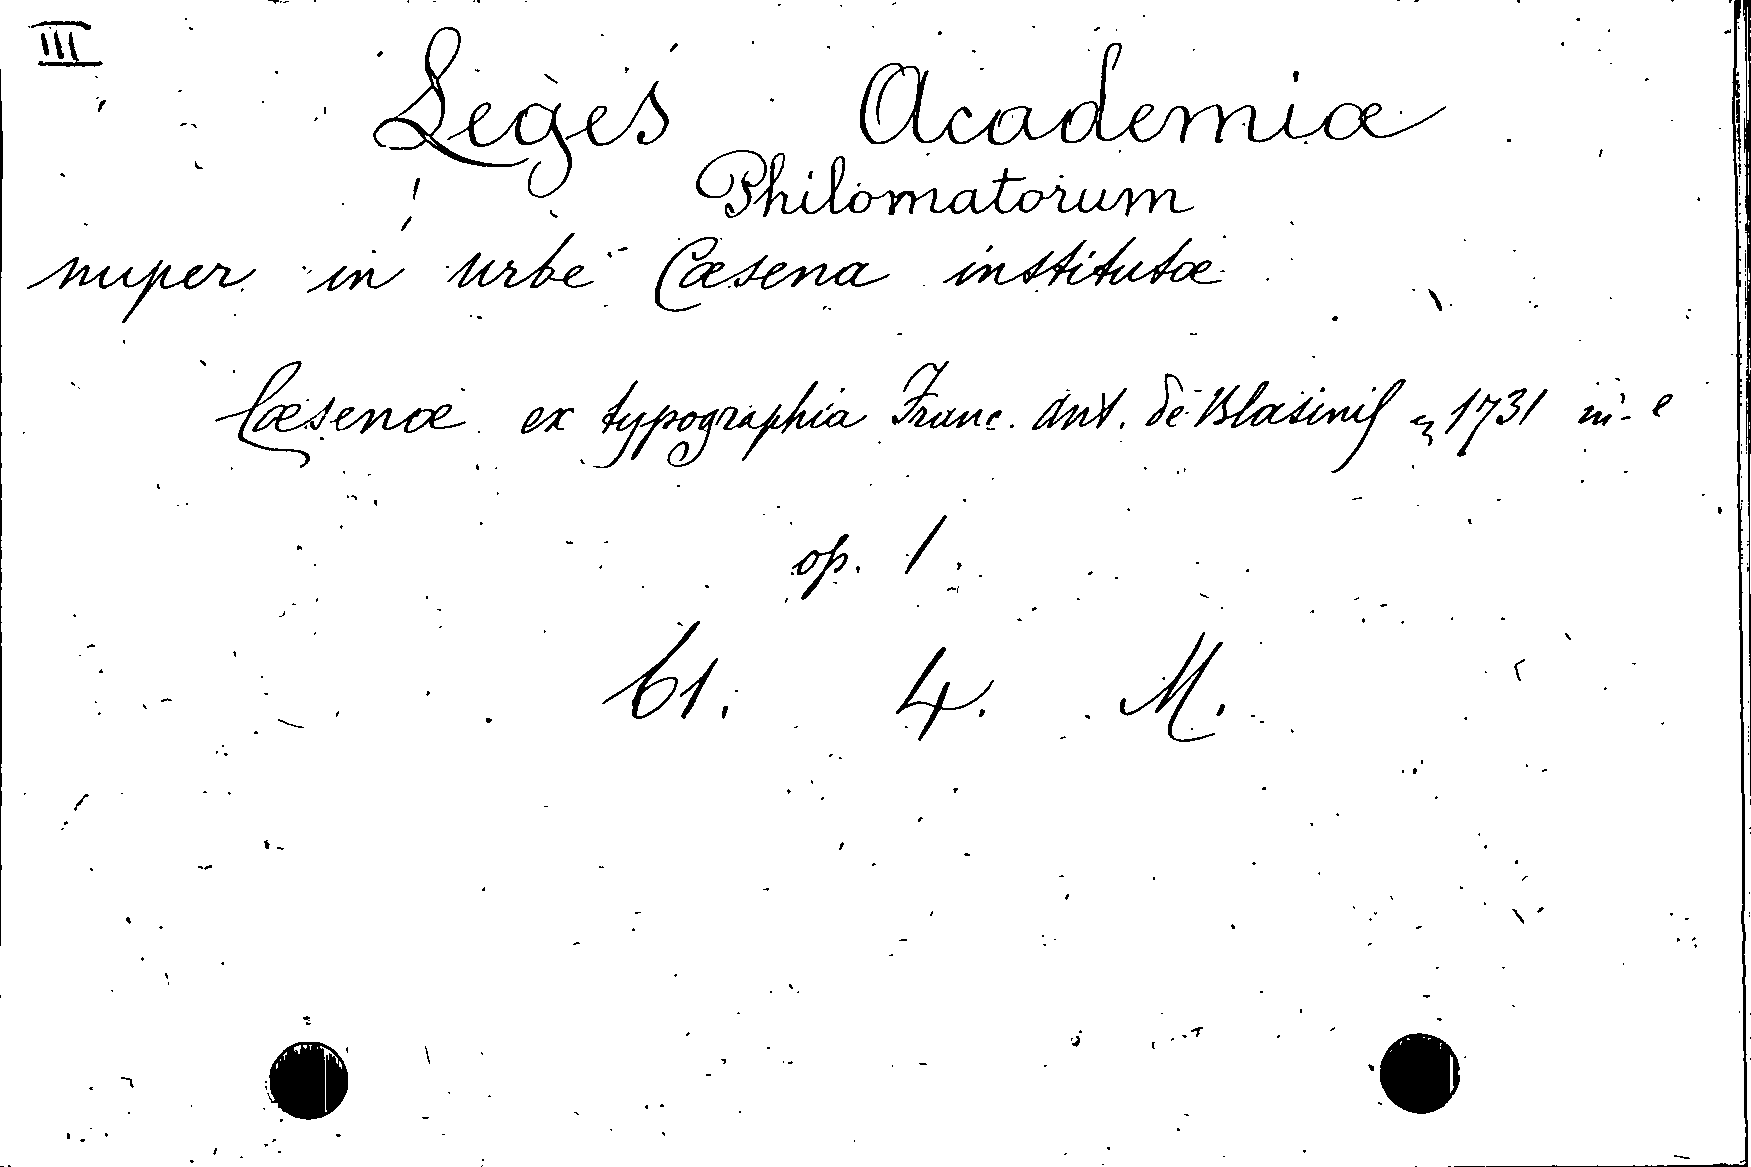 III
Leges Academiæ
Philomatorum
nuper in urbe Cæsena institutæ
Cæsenæ ex typographia Franc. Ant. de Blasinis 1731 in-
op. 1.
61. 4. M.